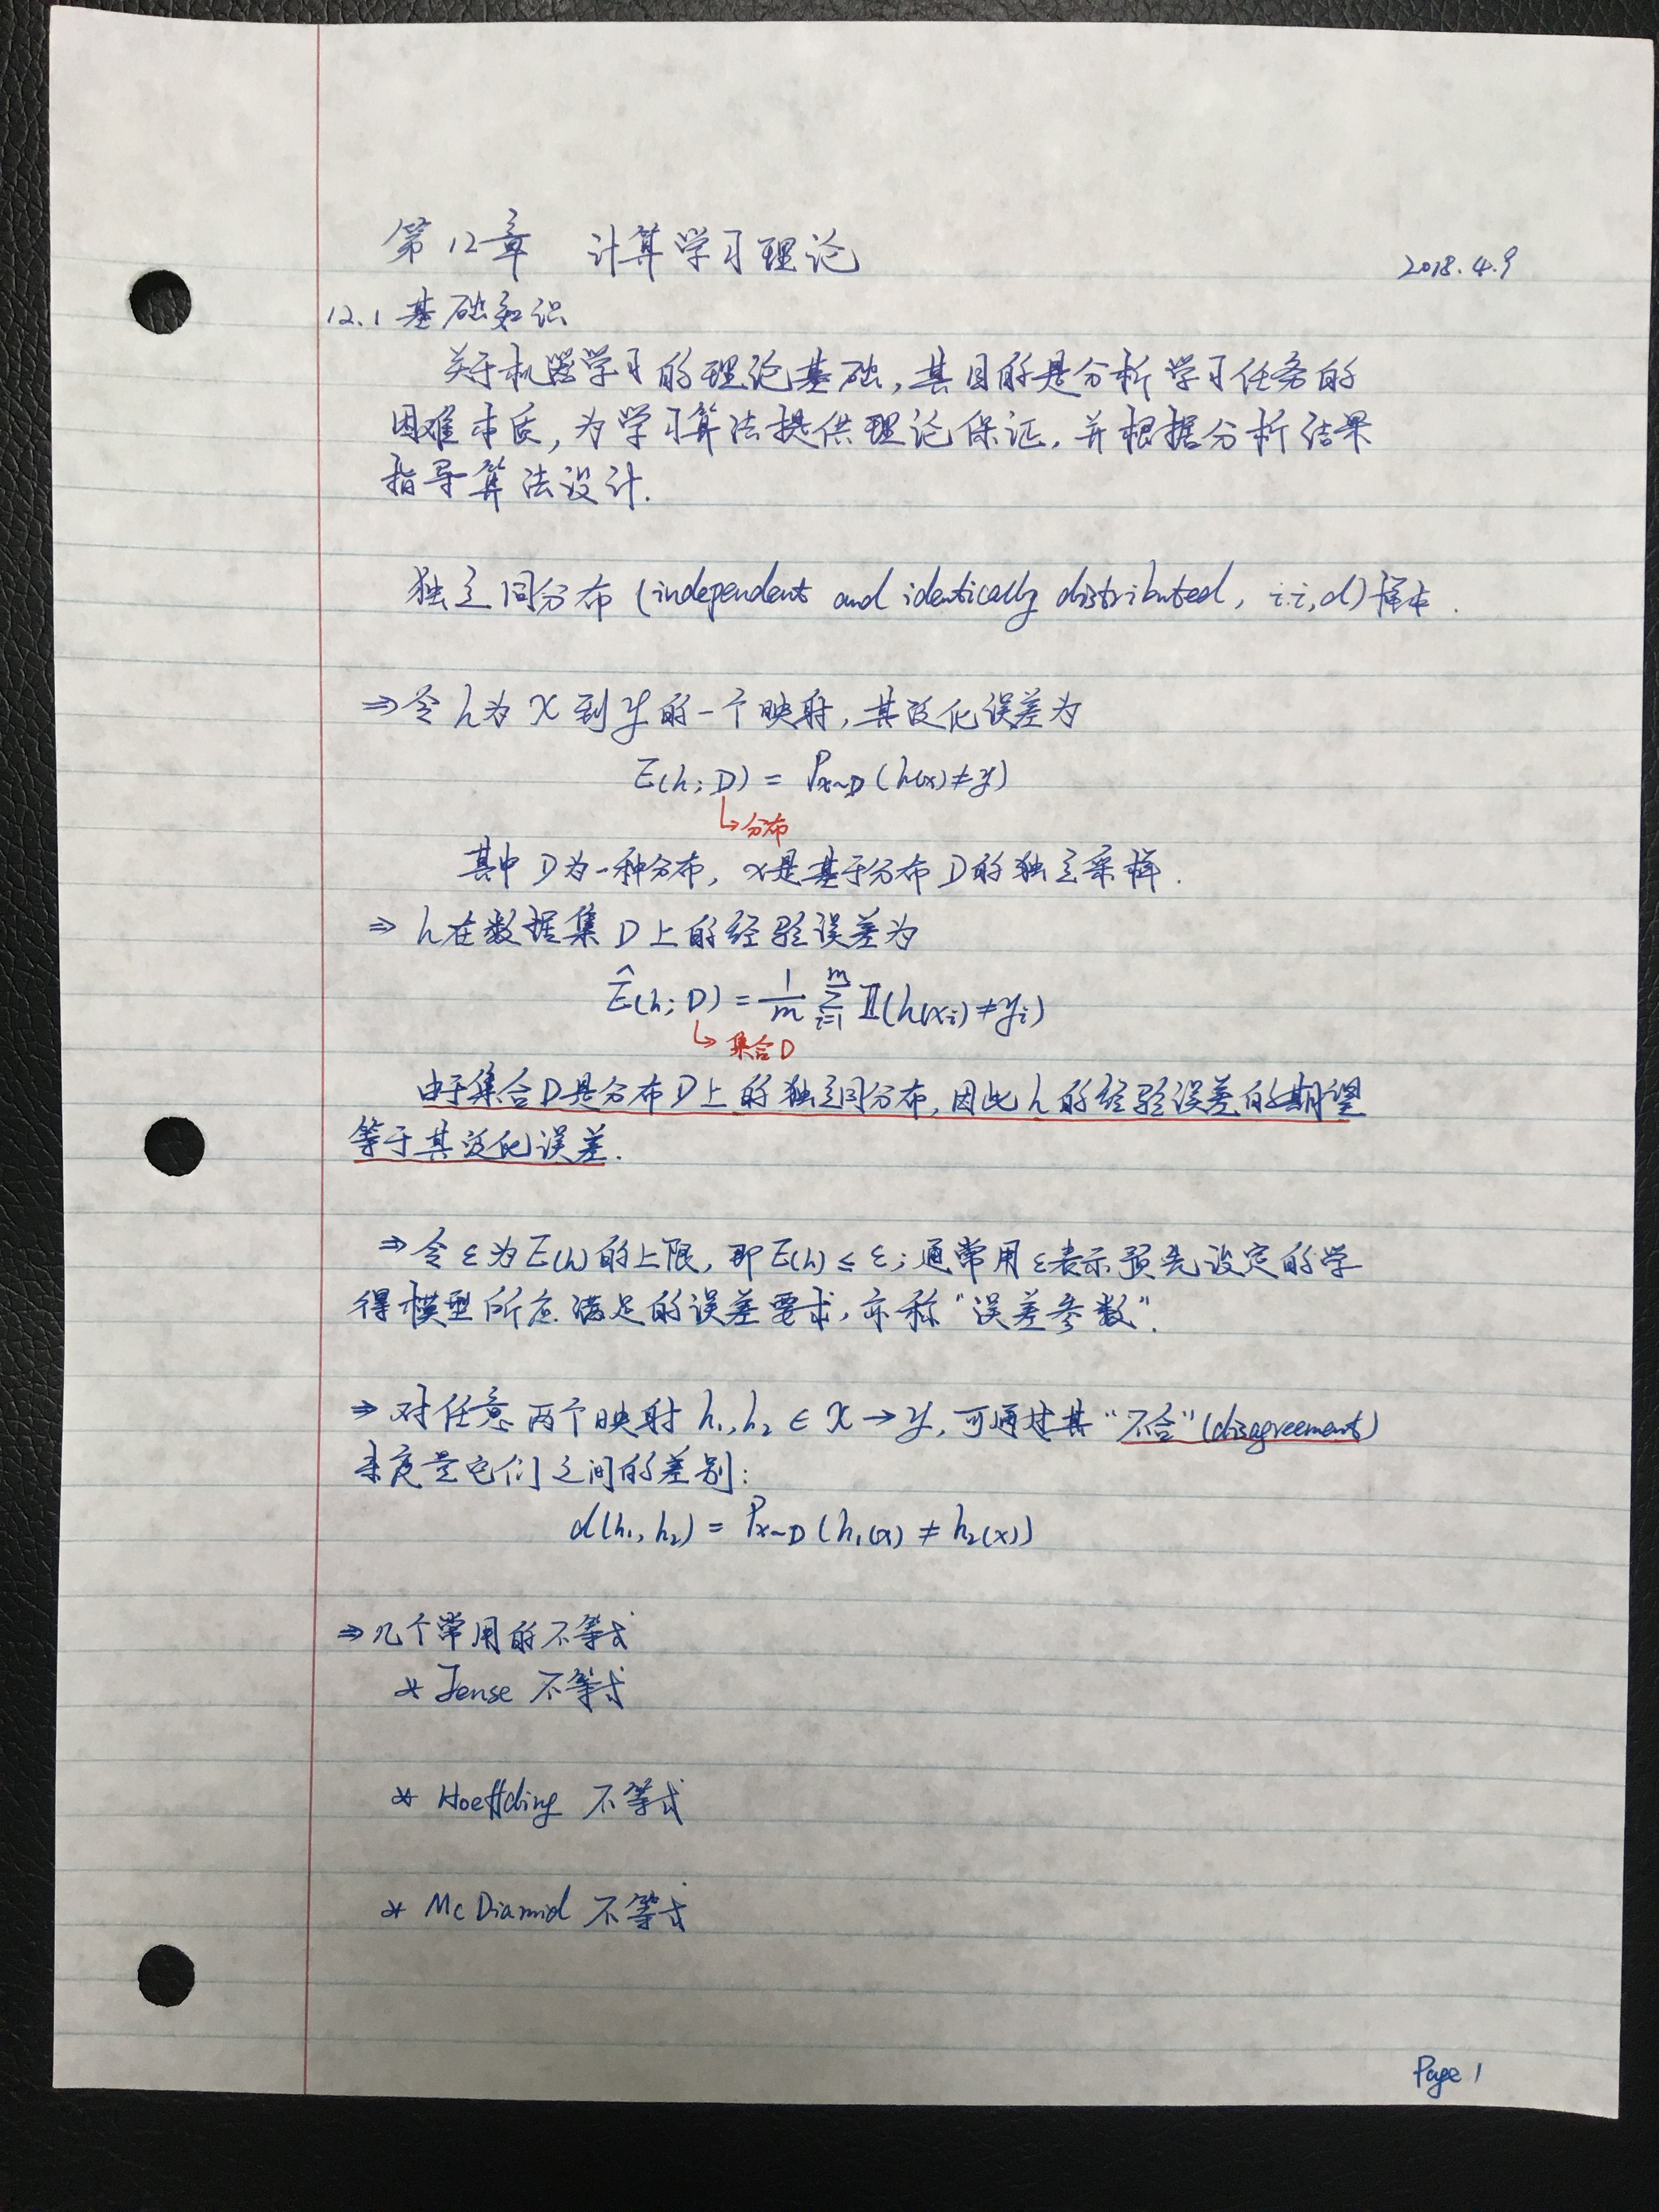 第12章 计算学习理论
2018.4.9
12.1 基础知识
关于机器学习的理论基础,其目的是分析学习任务的
困难本质,为学习算法提供理论保证,并根据分析结果
指导算法设计.
独立同分布 (independent and identically distributed, i.i,d) 样本.
⇒ 令 h 为 X 到 Y 的一个映射,其泛化误差为
E(h; D) = P_{x~D} (h(x) ≠ y)
↳ 分布
其中 D 为一种分布, x是基于分布 D 的独立采样.
⇒ h 在数据集 D 上的经验误差为
Ê(h; D) = 1/m Σ_{i=1}^{m} 𝕀(h(x_i) ≠ y_i)
↳ 集合 D
由于集合D是分布D上的独立同分布,因此 h 的经验误差的期望
等于其泛化误差.
⇒ 令 ε 为 E(h) 的上限, 即 E(h) ≤ ε; 通常用 ε 表示预先设定的学
得模型所应满足的误差要求,亦称 "误差参数".
⇒ 对任意两个映射 h₁, h₂ ∈ X → Y, 可通过其 "不合" (disagreement)
来度量它们之间的差别:
d(h₁, h₂) = P_{x~D} (h₁(x) ≠ h₂(x))
⇒ 几个常用的不等式
* Jense 不等式
* Hoeffding 不等式
* McDiamid 不等式
Page 1